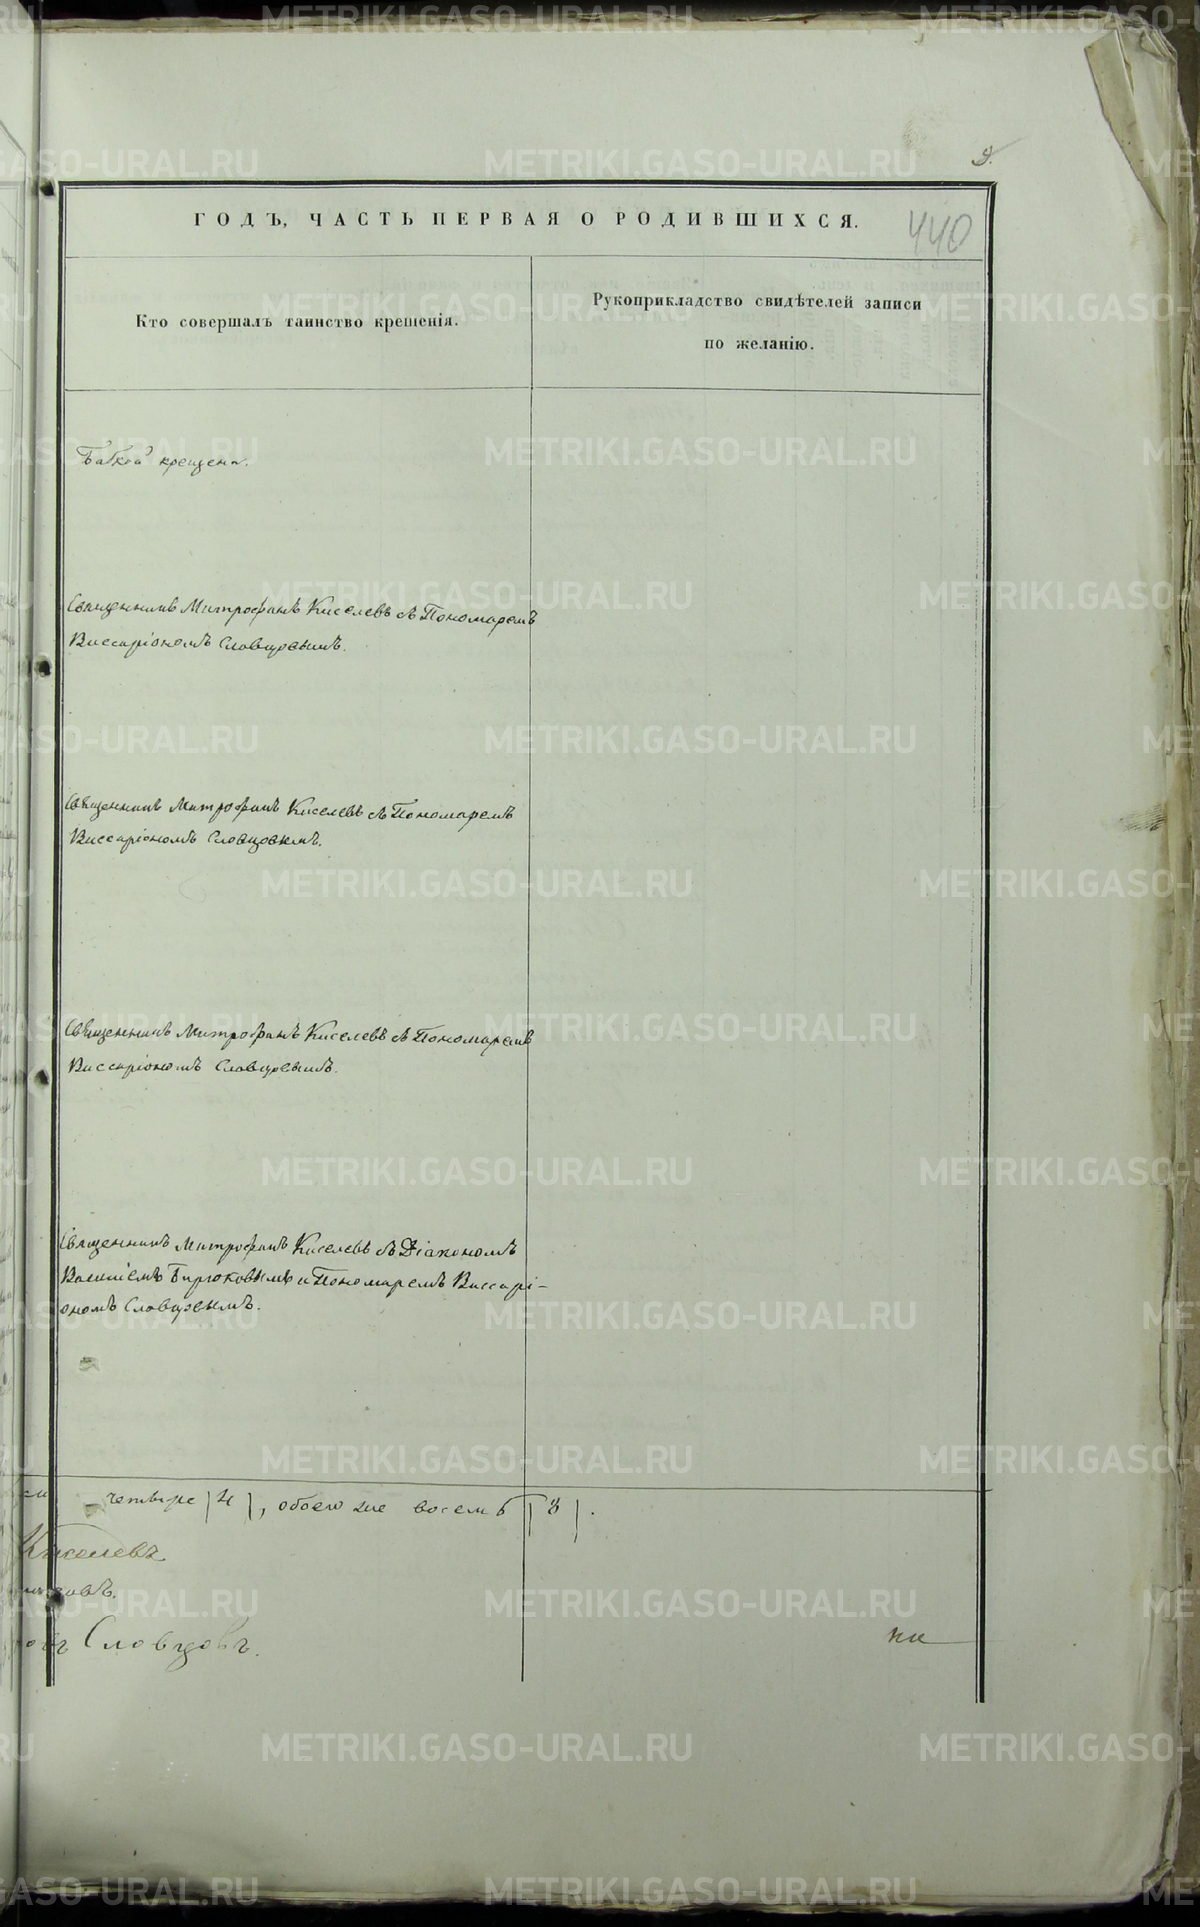 9.
ГОДЪ, ЧАСТЬ ПЕРВАЯ О РОДИВШИХСЯ.
440
Кто совершалъ таинство крещенія.
Рукоприкладство свидѣтелей записи
по желанію.
Бабкой крещена.
Священникъ Митрофанъ Киселевъ съ Пономаремъ
Виссаріономъ Словцовымъ.
Священникъ Митрофанъ Киселевъ съ Пономаремъ
Виссаріономъ Словцовымъ.
Священникъ Митрофанъ Киселевъ съ Пономаремъ
Виссаріономъ Словцовымъ.
Священникъ Митрофанъ Киселевъ съ Діакономъ
Василіемъ Бирюковымъ и Пономаремъ Виссарі-
ономъ Словцовымъ.
четыре |4|, обоего же восемь |8|.
Киселевъ
Словцовъ.
METRIKI.GASO-URAL.RU